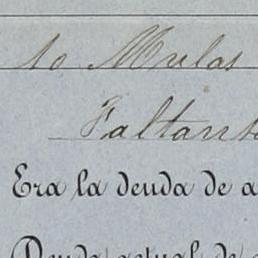 10 Mulas
Faltant
Era la deuda de a
Deuda actual de